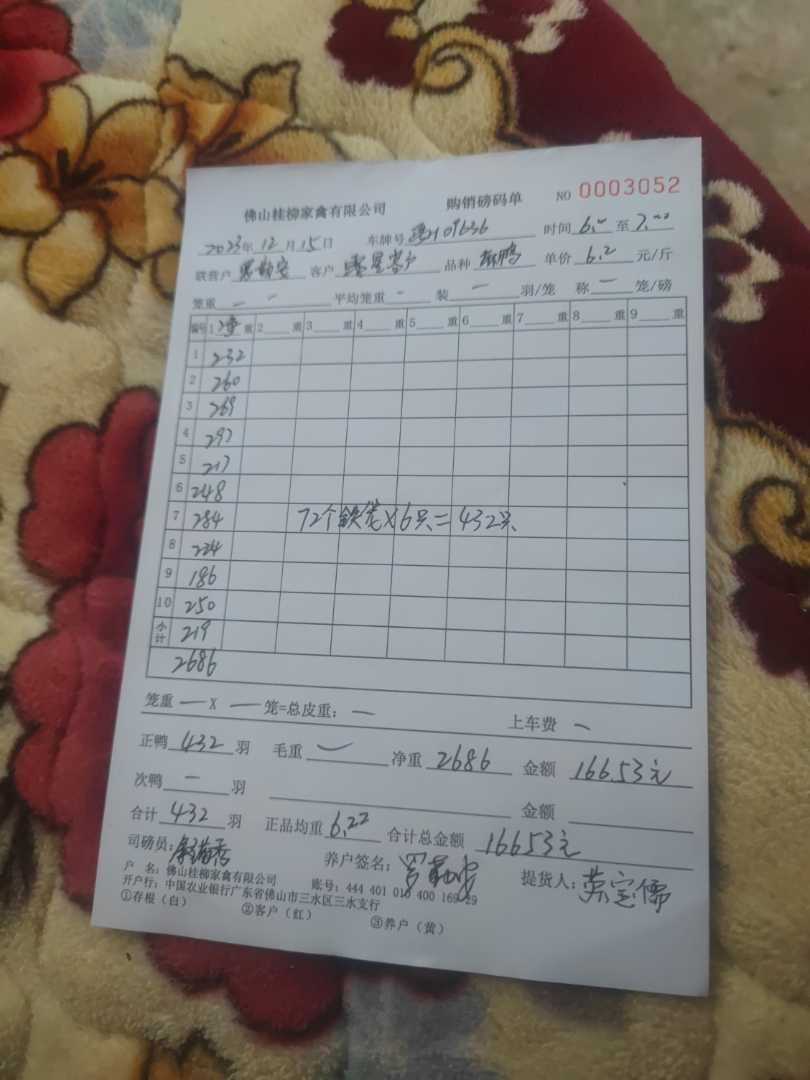 佛山桂柳家禽有限公司 购销磅码单 NO 0003052
2023年12月15日 车牌号 09636 时间 6:00 至 7:00
联营户 客户 零星客户 品种 单价 6.2 元/斤
笼重 — — 平均笼重 — 装 — 羽/笼 称 — 笼/磅
编号 1 净重 2 重 3 重 4 重 5 重 6 重 7 重 8 重 9 重
1 232
2 260
3 269
4 297
5 217
6 248
7 284 72个铁笼×6只=432只
8 224
9 186
10 250
小计 219
2686
笼重 — X — 笼=总皮重: — 上车费 —
正鸭 432 羽 毛重 — 净重 2686 金额 16653元
次鸭 — 羽 金额
合计 432 羽 正品均重 6.22 合计总金额 16653元
司磅员: 养户签名: 提货人:
户 名: 佛山桂柳家禽有限公司 账号: 444 401 010 400 169 29
开户行: 中国农业银行广东省佛山市三水区三水支行
①存根(白) ②客户(红) ③养户(黄)